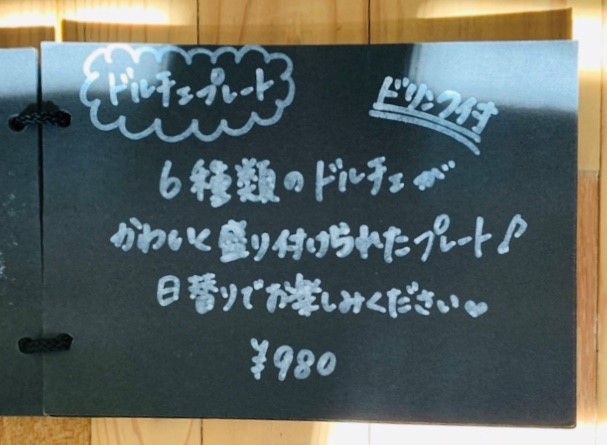 ドルチェプレート
ドリンク付
6種類のドルチェが
かわいく盛り付けられたプレート♪
日替りでお楽しみください♥
¥980